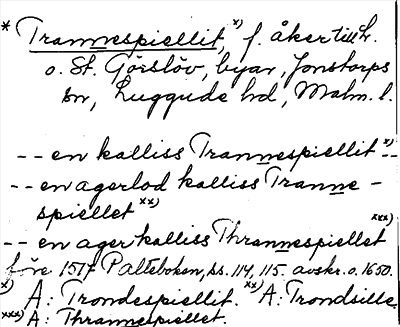 * Trannespiellit, x) f. åker till L.
o. St. Görslöv, byar, Jonstorps
sn, Luggude hd, Malm. l.
-- en kalliss Trannespiellit x) --
-- en agerlod kalliss Tranne-
spiellet xx)
-- en ager kalliss Thrannespiellet xxx)
före 1517 Palteboken, ss. 114, 115. avskr. o. 1650.
x) A: Trondespiellit. xx) A: Trondsille
xxx) A: Thrannespiellet.